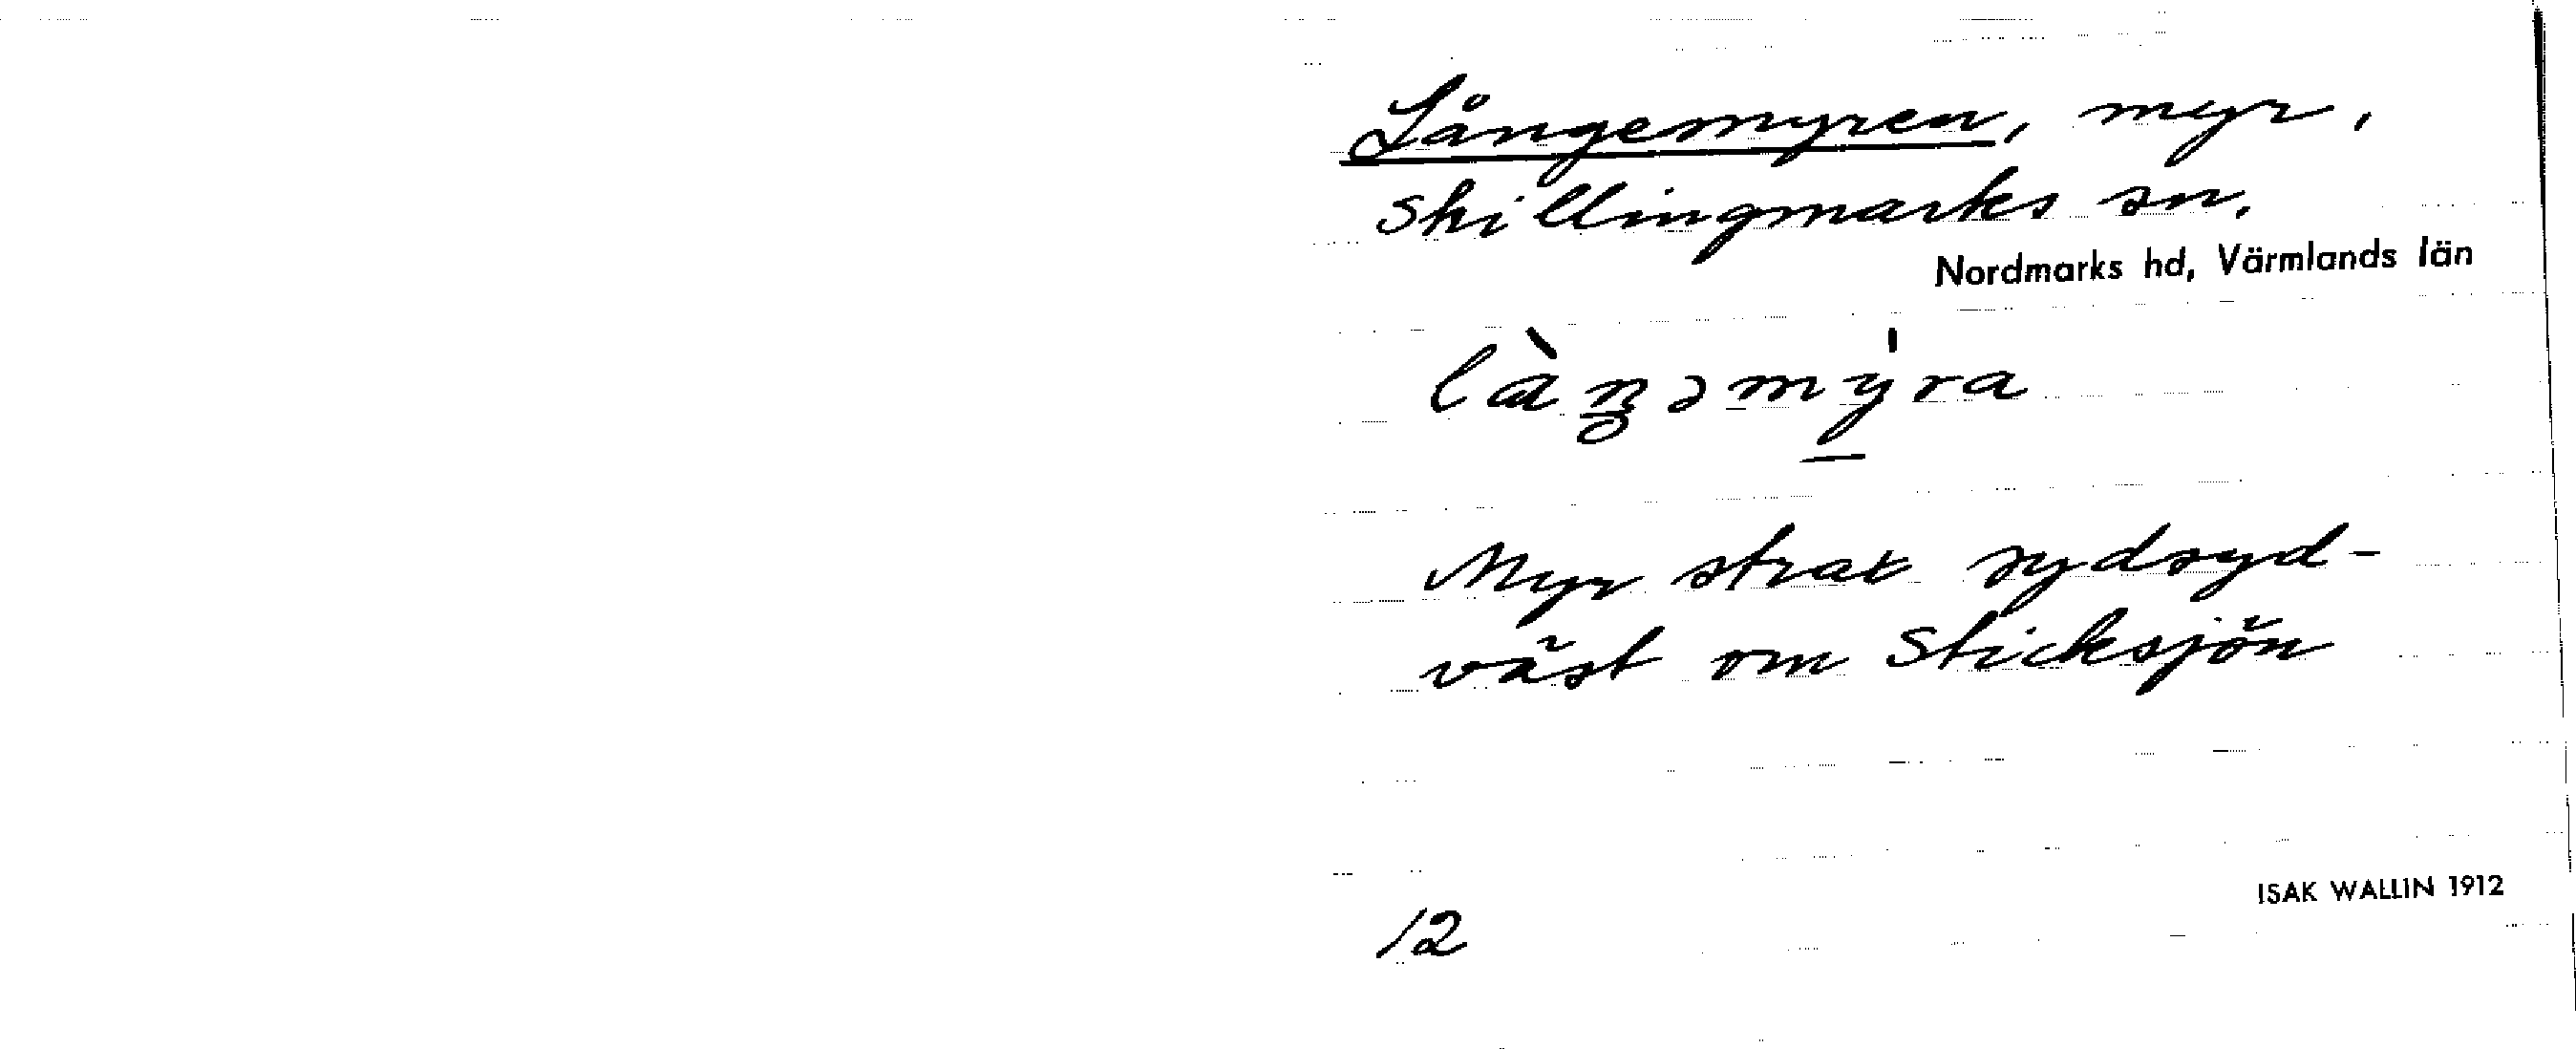 Långemyren, myr,
Skillingmarks sn.
Nordmarks hd, Värmlands län
là̀ŋəmy̍ra
Myr strax sydsyd-
väst om Sticksjön
ISAK WALLIN 1912
12